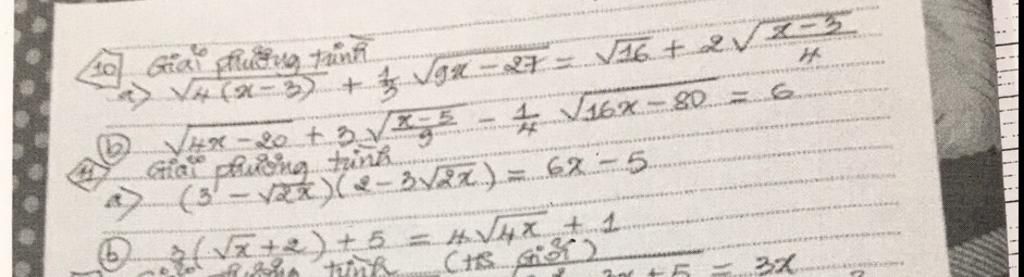 10 Giải phương trình
a) √4(x-3) + 1/3 √9x-27 = √16 + 2√x-3/4
b) √4x-20 + 3√x-5/9 - 1/4 √16x-80 = 6
11 Giải phương trình
a) (3-√2x)(2-3√2x) = 6x-5
b) 3(√x+2)+5 = 4√4x + 1
(HS Giỏi)
phương trình
3x+5 = 3x